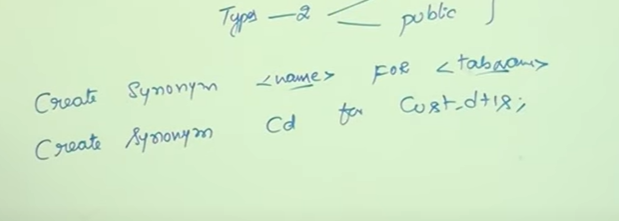 Types — 2 public
Create Synonym <name> FOR <tabname>
Create Synonym Cd for Cust_dtls;